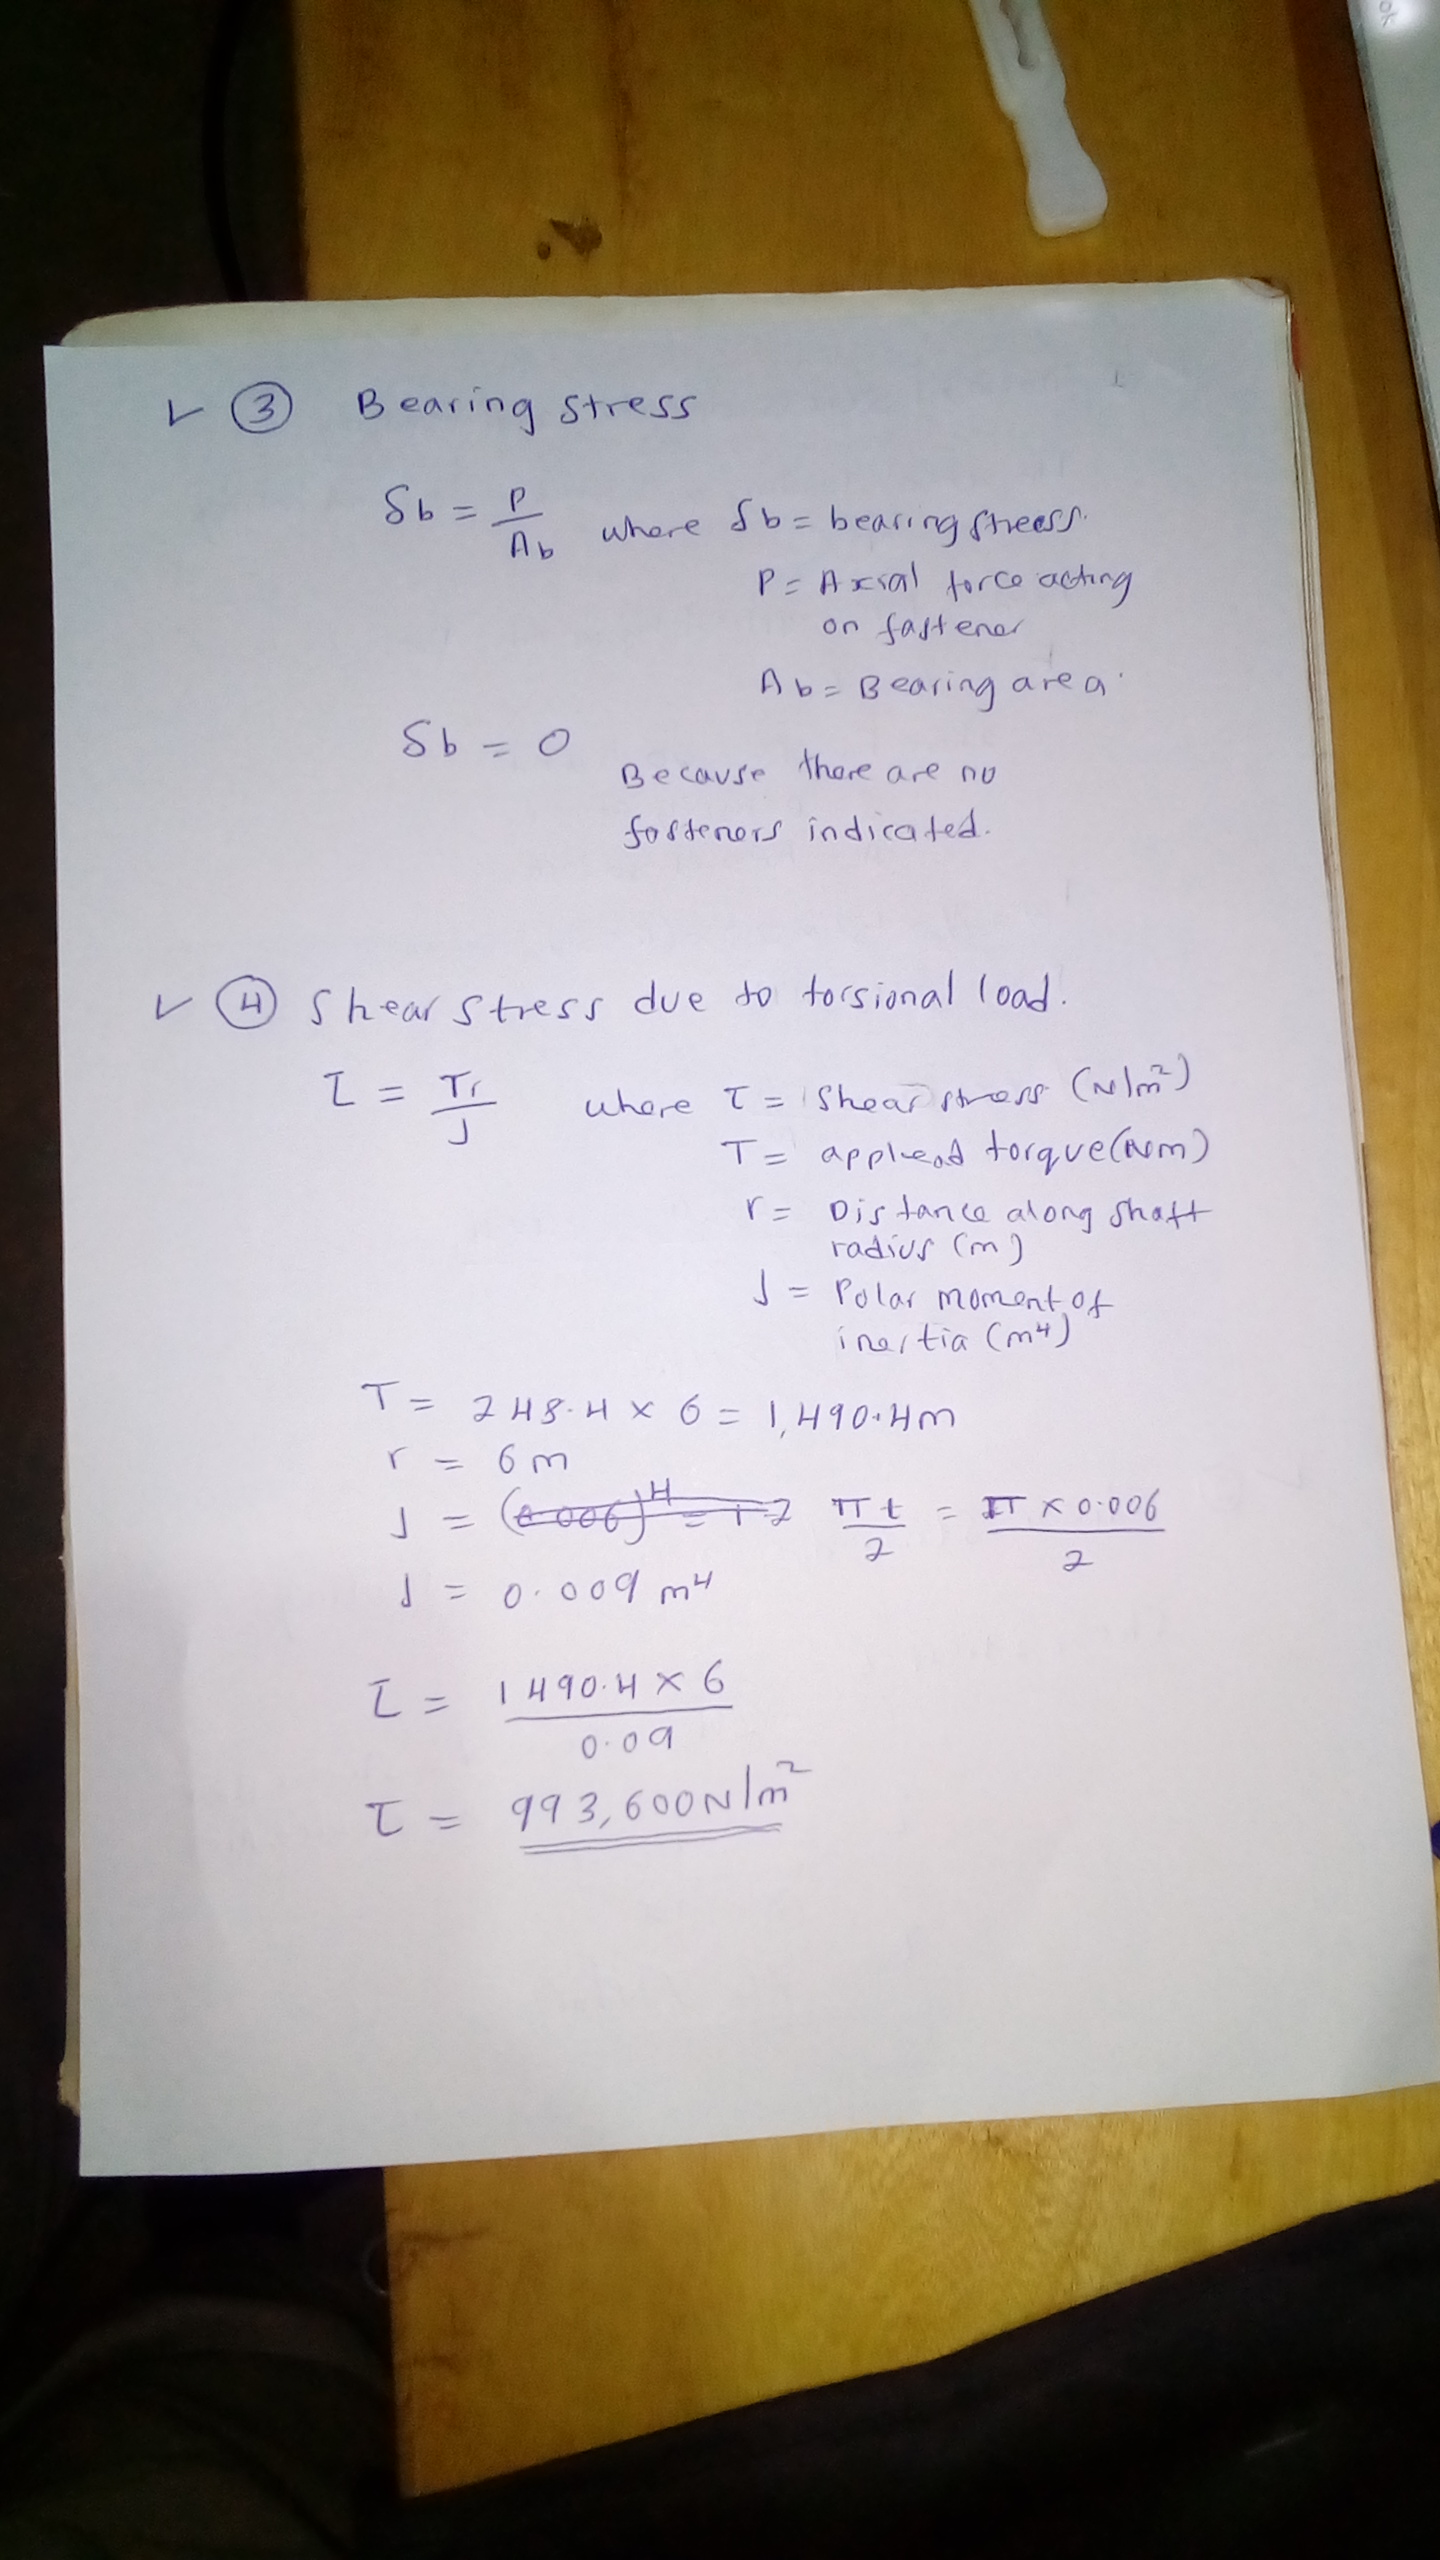 ✓ ③ Bearing stress
δb = P/Ab where δb = bearing stress.
P = Axial force acting
on fastener
Ab = Bearing area.
δb = 0
Because there are no
fasteners indicated.
✓ ④ Shear stress due to torsional load.
τ = Tr/J where τ = Shear stress (N/m²)
T = applied torque (Nm)
r = Distance along shaft
radius (m)
J = Polar moment of
inertia (m⁴)
T = 248.4 × 6 = 1,490.4m
r = 6m
J = πt/2 = π × 0.006/2
J = 0.009 m⁴
τ = 1490.4 × 6/0.09
τ = 993,600N/m²